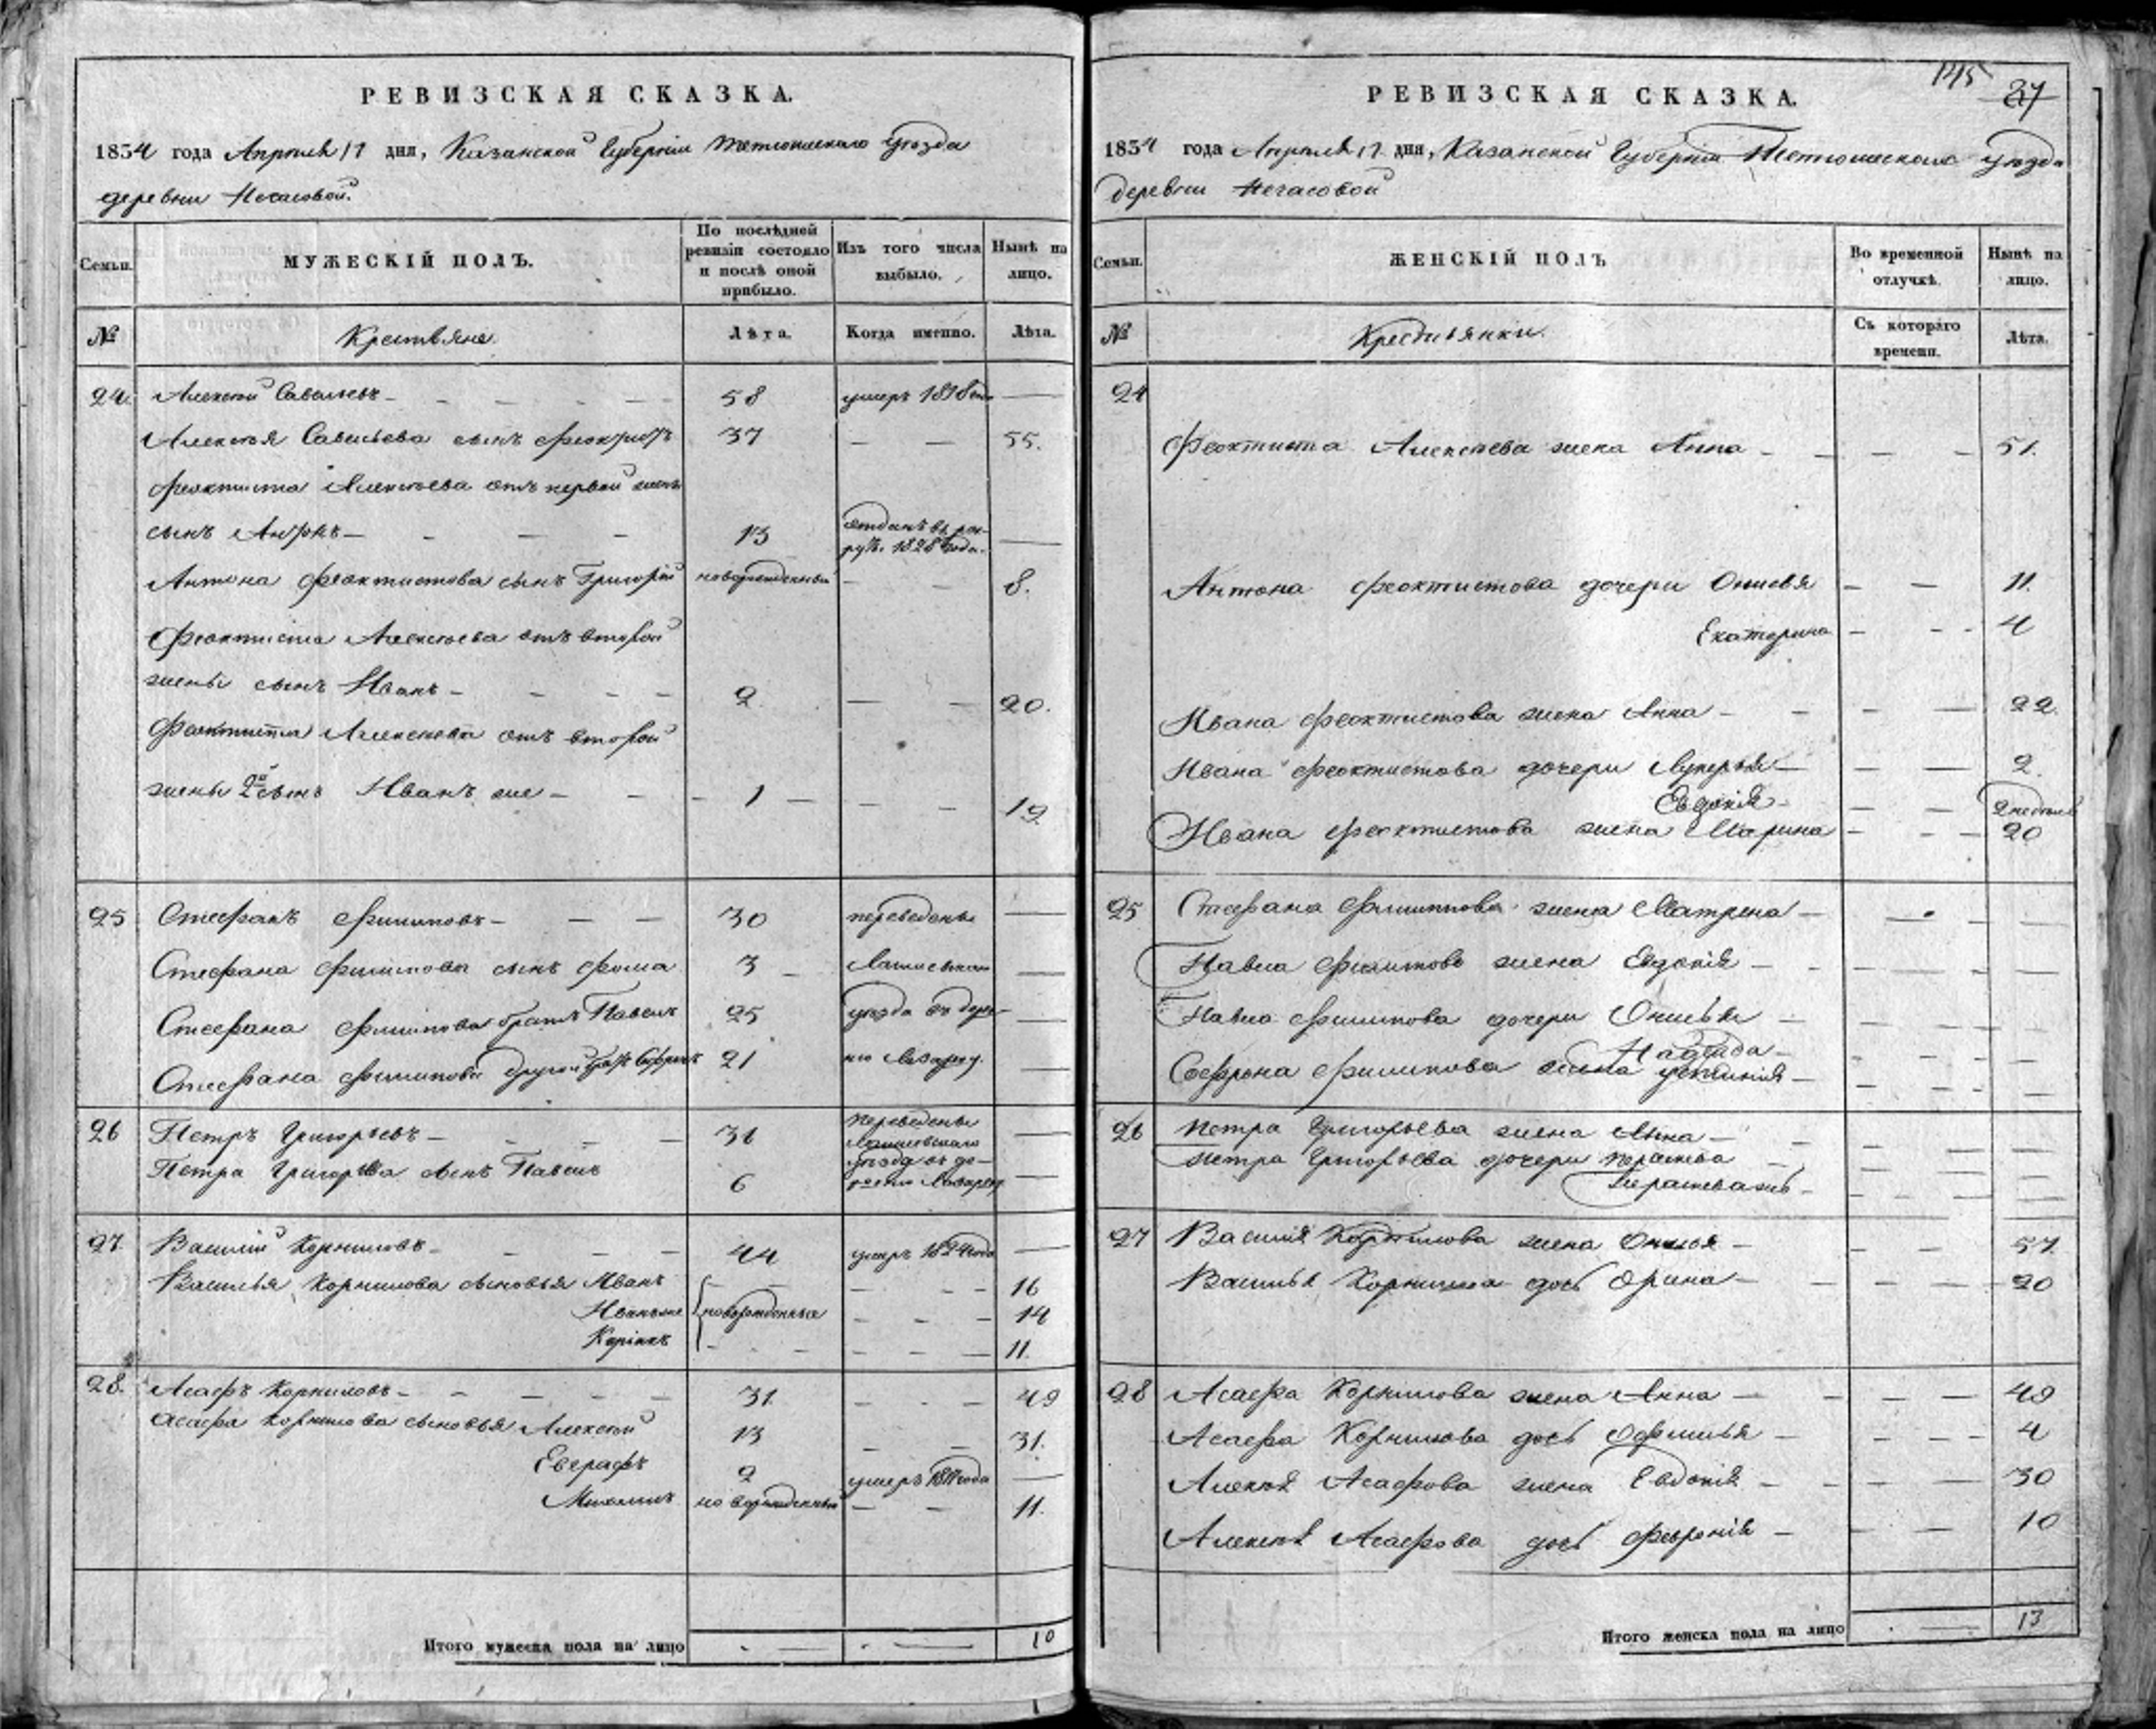 РЕВИЗСКАЯ СКАЗКА.
1834 года Апреля 17 дня, Казанской Губернии Тетюшскаго Уезда
деревни Нечасовой.
Семьи.
МУЖЕСКІЙ ПОЛЪ.
По послѣдней ревизіи состояло и послѣ оной прибыло.
Изъ того числа выбыло.
Нынѣ на лицо.
№
Крестьяне
Лѣта.
Когда именно.
Лѣта.
24. Алексей Савельевъ 58 умеръ 1818 года
Алексея Савельева сынъ Феоктистъ 37 55.
Феоктиста Алексеева отъ первой жены
сынъ Антонъ 13 отданъ въ рекруты 1828 года.
Антона Феоктистова сынъ Григорій новорожденный 8.
Феоктиста Алексеева отъ второй
жены сынъ Иванъ 2. 20.
Феоктиста Алексеева отъ второй
жены 2й сынъ Иванъ же 1 19
25 Стефанъ Филиповъ 30 переведены
Стефана Филипова сынъ Фома 3 Лаишевскаго
Стефана Филипова братъ Павелъ 25 уезда въ дерев-
Стефана Филипова другой братъ Софронъ 21 ню
26 Петръ Григорьевъ 31 переведены Лаишевскаго
Петра Григорьева сынъ Павелъ 6 уезда въ де-
27. Василій Корниловъ 44 умеръ 1824 года
Василья Корнилова сыновья Иванъ 16
Иванъ же новорожденные 14
11.
28. Асафъ Корниловъ 31. 49
Асафа Корнилова сыновья Алексей 13 31.
Евграфъ 2 умеръ года
новорожденный 11.
Итого мужеска пола на лицо 10
145 27
РЕВИЗСКАЯ СКАЗКА.
1834 года Апреля 17 дня, Казанской Губернии Тетюшскаго уезда
деревни Нечасовой
Семьи.
ЖЕНСКІЙ ПОЛЪ
Во временной отлучкѣ.
Нынѣ на лицо.
№
Крестьянки.
Съ котораго времени.
Лѣта.
24
Феоктиста Алексеева жена Анна 51.
Антона Феоктистова дочери Онисья 11.
Екатерина 4
Ивана Феоктистова жена Анна 22.
Ивана Феоктистова дочери Лукерья 2.
Евдокія 2 недели
Ивана Феоктистова жена Марина 20
25 Стефана Филипова жена Матрена
Павла Филипова жена Евдокія
Павла Филипова дочери Онисья
Софрона Филипова жена Устинія
26 Петра Григорьева жена Анна
Петра Григорьева дочери Парасковья
27 Василія Корнилова жена Онисья 57.
Василья Корнилова дочь Орина 20
28 Асафа Корнилова жена Анна 49
Асафа Корнилова дочь Офимья 4
Алексея Асафова жена Евдокія 30
Алексея Асафова дочь Февронія 10
Итого женска пола на лицо 13